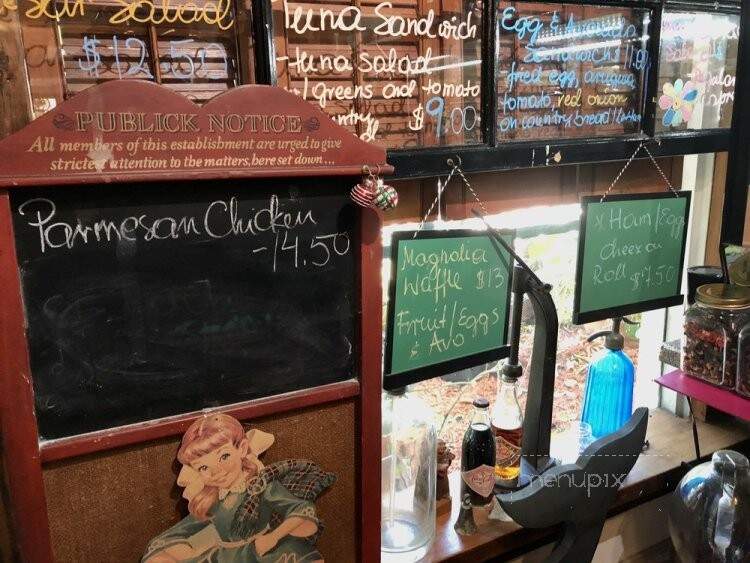 Salad
$12.50
Tuna Sandwich
tuna salad
w/ greens and tomato
$9.00
Egg & Avocado
Sandwich
fried egg, arugula
tomato, red onion
on country bread
PUBLICK NOTICE
All members of this establishment are urged to give
strictest attention to the matters, here set down...
Parmesan Chicken
-14.50
Magnolia
Waffle $13
Fruit/Eggs
& Avo
x Ham/Egg
Cheez on
Roll $7.50
menupix